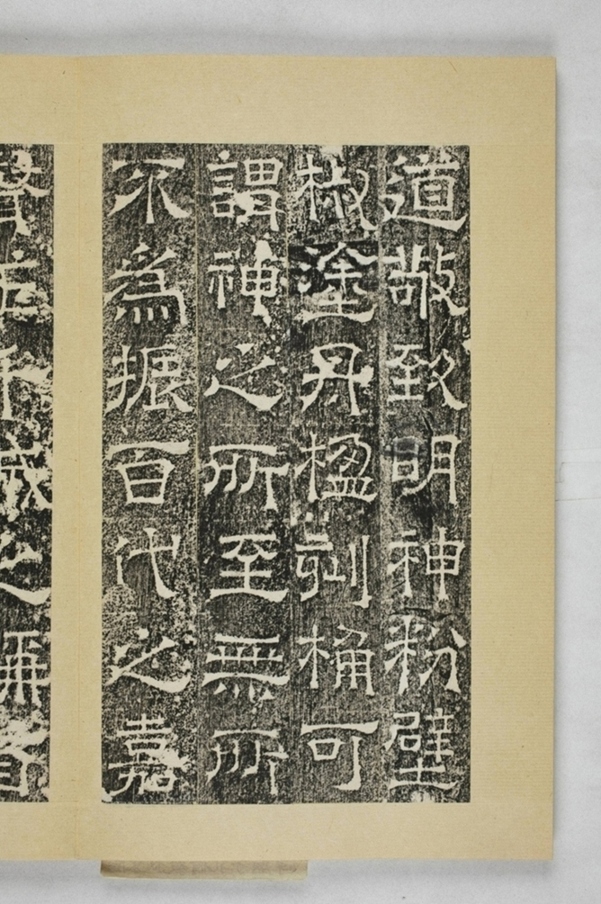 道敬致明神粉壁
椒塗丹楹刻桷可
謂神之所至無所
不為振百代之嘉